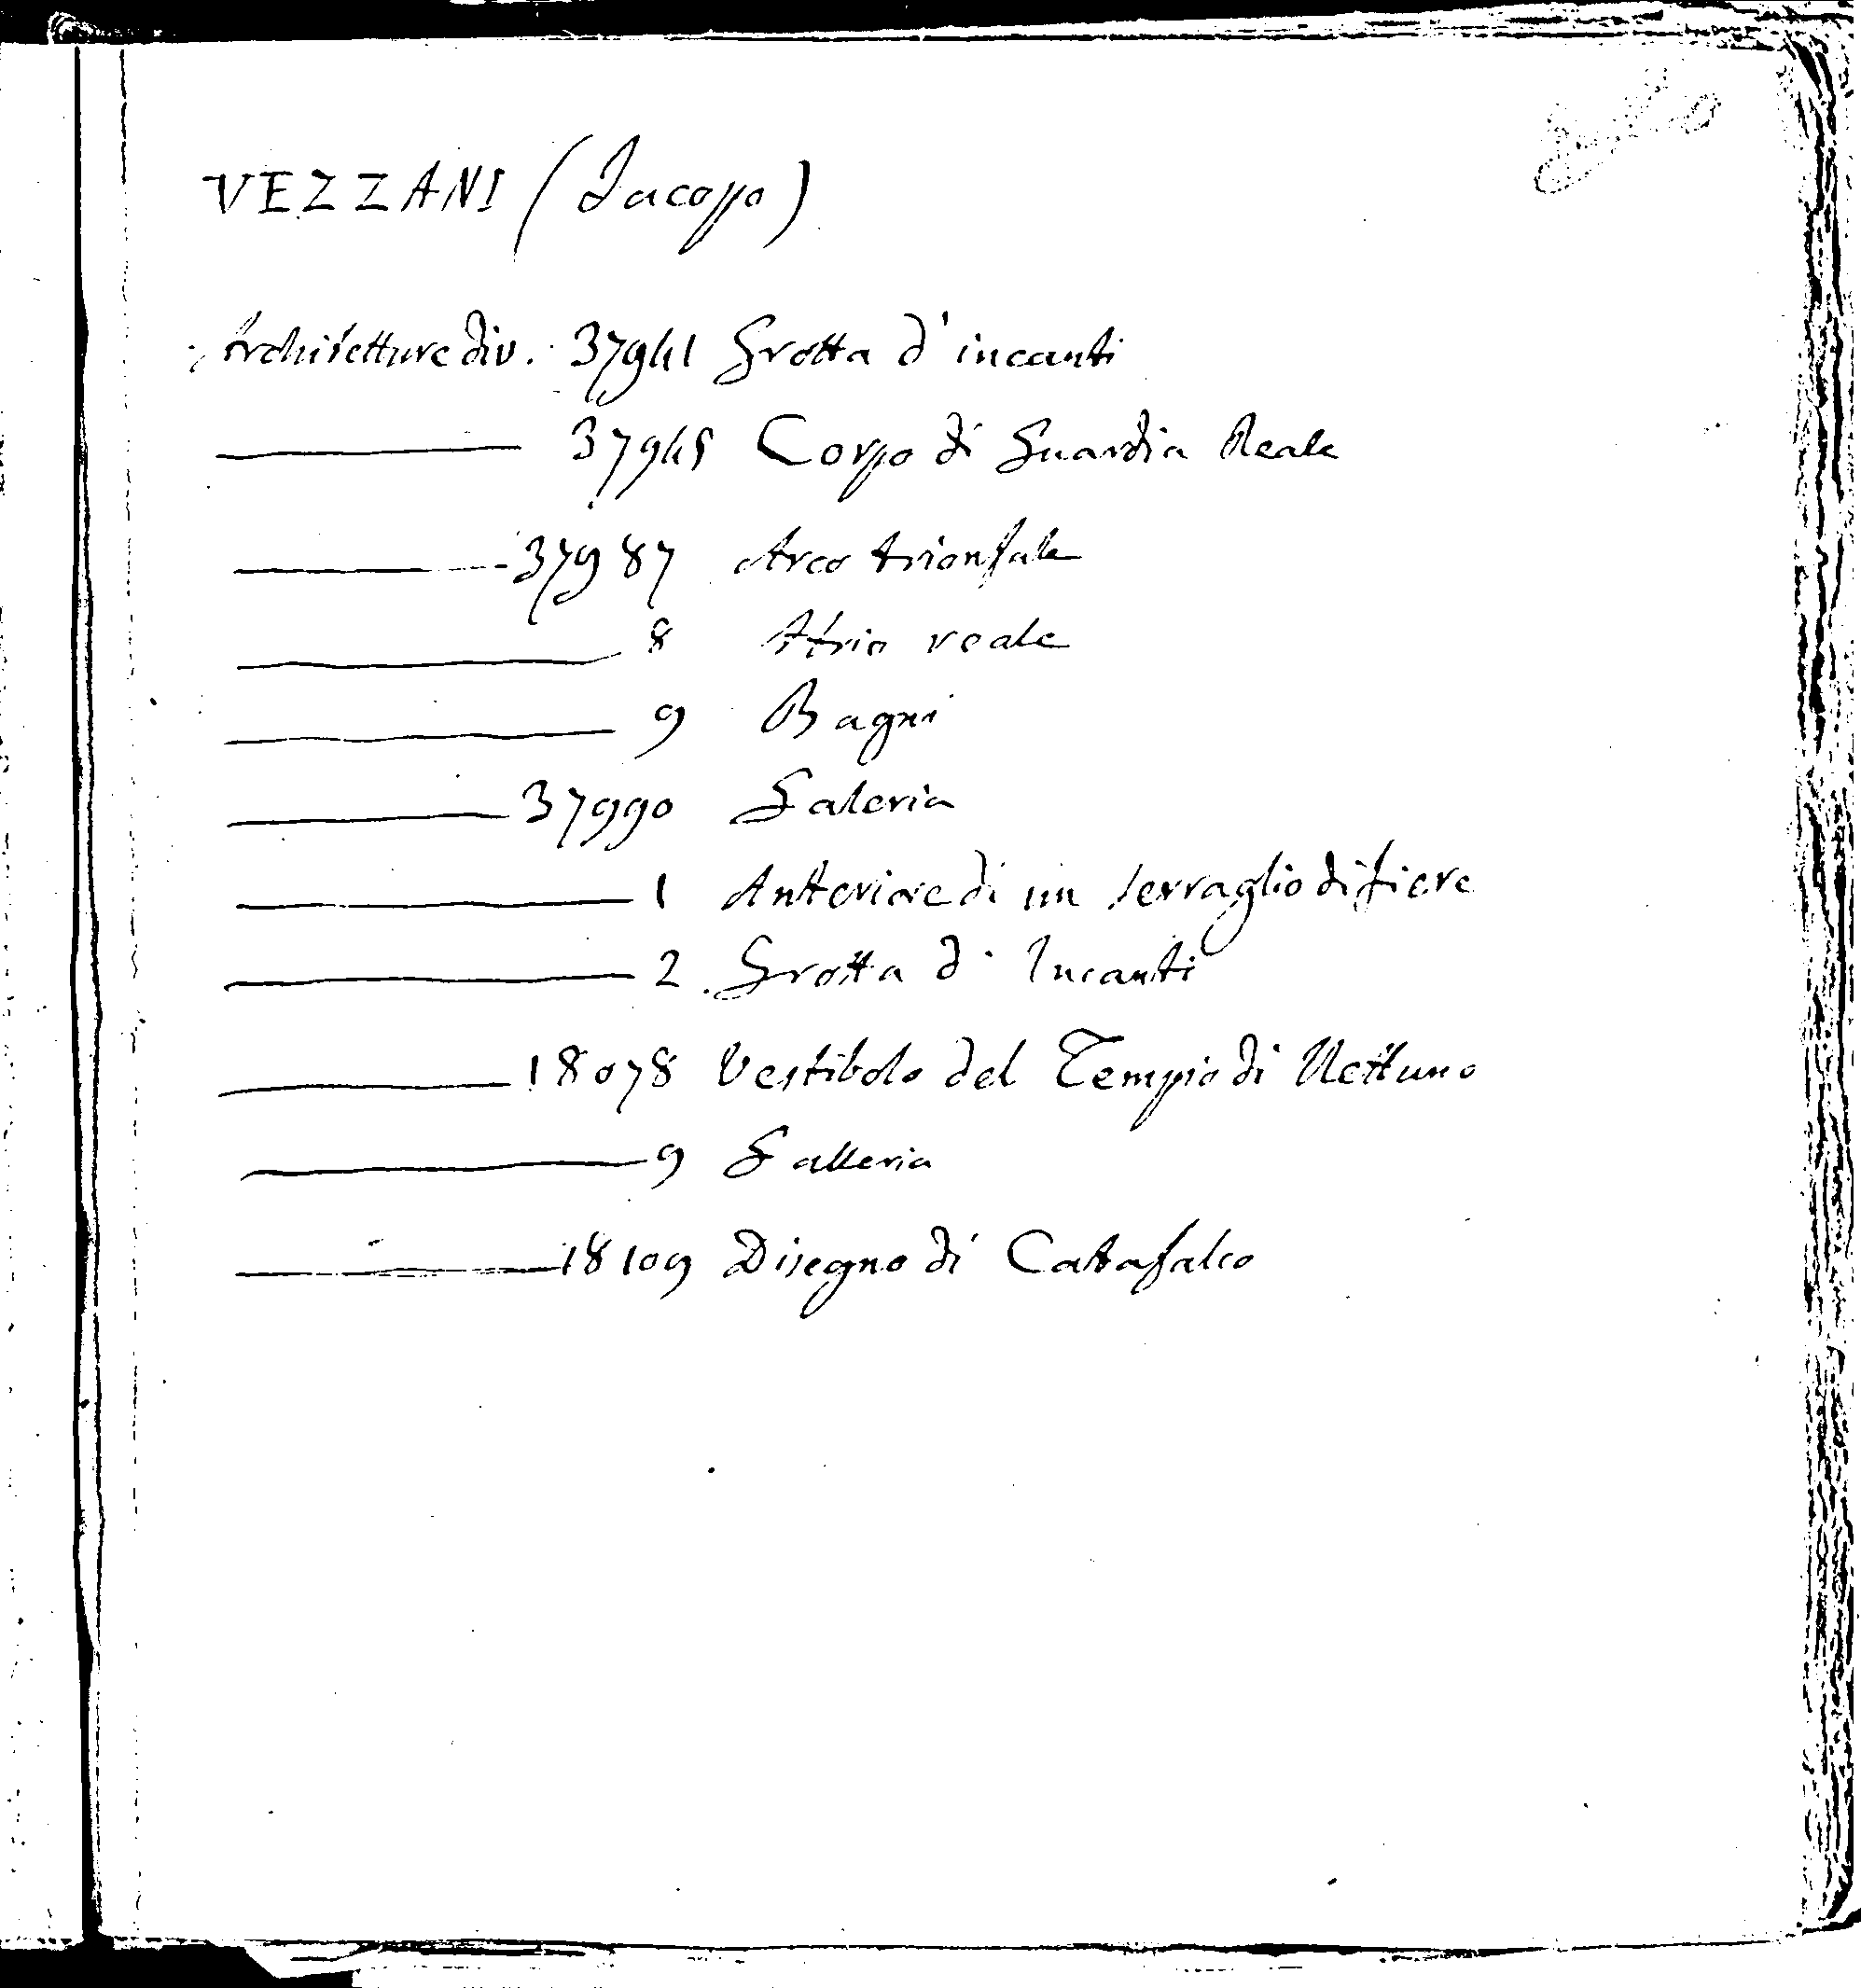 VEZZANI (Jacopo)
Architetture div. 37941 Grotta d'incanti
37945 Corpo di Guardia Reale
37987 Arco trionfale
8 Atrio reale
9 Bagni
37990 Galeria
1 Anteriore di un serraglio di fiere
2 Grotta d'Incanti
18078 Vestibolo del Tempio di Nettuno
9 Galleria
18109 Disegno di Cattafalco